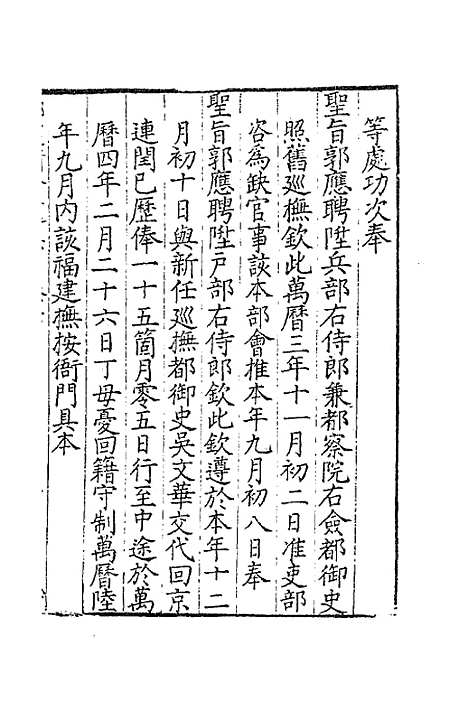 等處功次奉
聖旨郭應聘陞兵部右侍郎兼都察院右僉都御史
照舊巡撫欽此萬曆三年十一月初二日准吏部
咨為缺官事該本部會推本年九月初八日奉
聖旨郭應聘陞戶部右侍郎欽此欽遵於本年十二
月初十日與新任巡撫都御史吳文華交代回京
連閏巳歷俸一十五箇月零五日行至中途於萬
曆四年二月二十六日丁母憂回籍守制萬曆陸
年九月內該福建撫按衙門具本